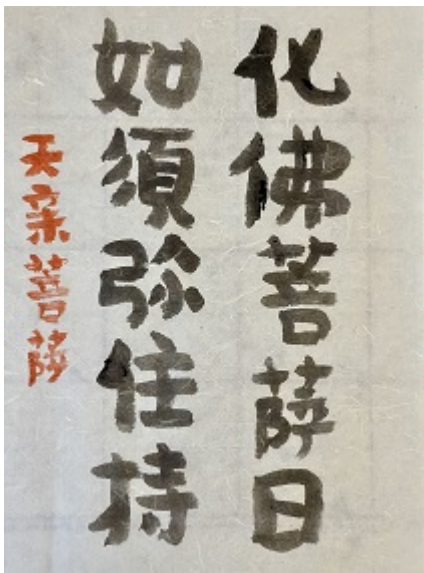 化佛菩薩日
如須弥住持
天亲菩薩